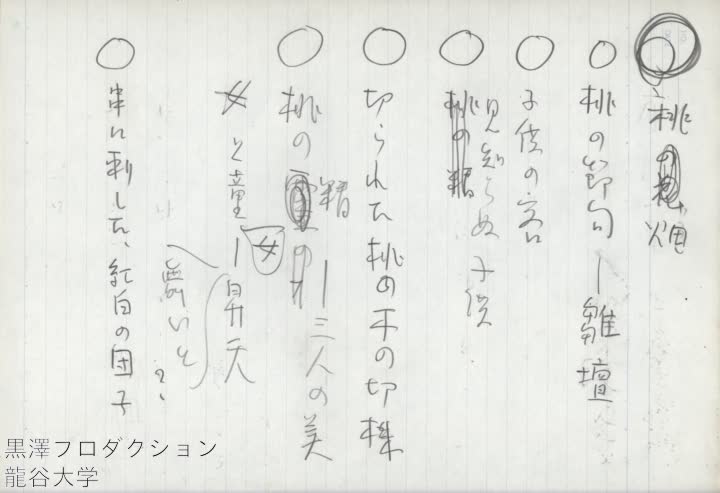 桃の畑
桃の節句ー雛壇
子供の客
見知らぬ子供
桃の精
切られた桃の木の切株
桃の精
ー三人の美
女と童女ー昇天
舞いを
串に刺した、紅白の団子
黒澤プロダクション
龍谷大学